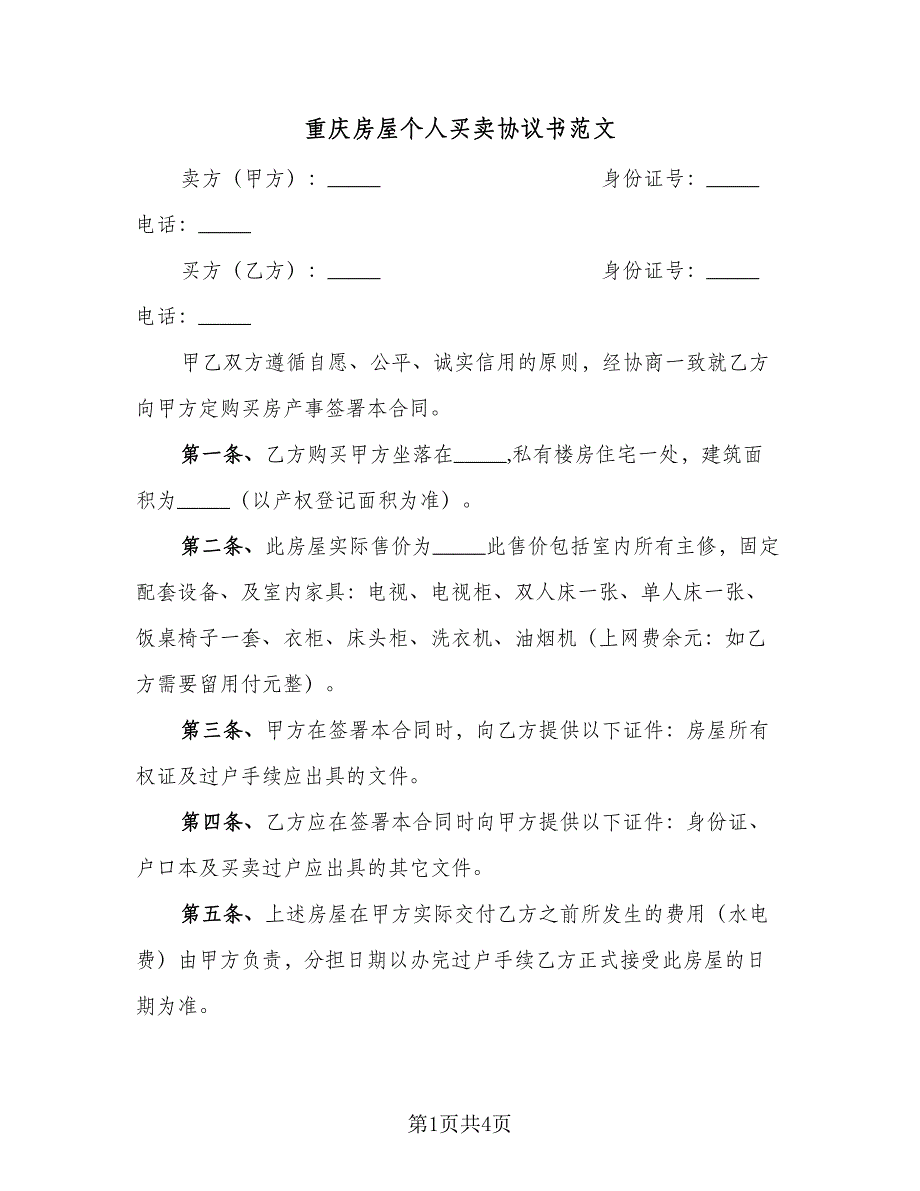 重庆房屋个人买卖协议书范文
卖方（甲方）：_____ 身份证号：_____
电话：_____
买方（乙方）：_____ 身份证号：_____
电话：_____
甲乙双方遵循自愿、公平、诚实信用的原则，经协商一致就乙方
向甲方定购买房产事签署本合同。
第一条、乙方购买甲方坐落在_____,私有楼房住宅一处，建筑面
积为_____（以产权登记面积为准）。
第二条、此房屋实际售价为_____此售价包括室内所有主修，固定
配套设备、及室内家具：电视、电视柜、双人床一张、单人床一张、
饭桌椅子一套、衣柜、床头柜、洗衣机、油烟机（上网费余元：如乙
方需要留用付元整）。
第三条、甲方在签署本合同时，向乙方提供以下证件：房屋所有
权证及过户手续应出具的文件。
第四条、乙方应在签署本合同时向甲方提供以下证件：身份证、
户口本及买卖过户应出具的其它文件。
第五条、上述房屋在甲方实际交付乙方之前所发生的费用（水电
费）由甲方负责，分担日期以办完过户手续乙方正式接受此房屋的日
期为准。
第1页共4页